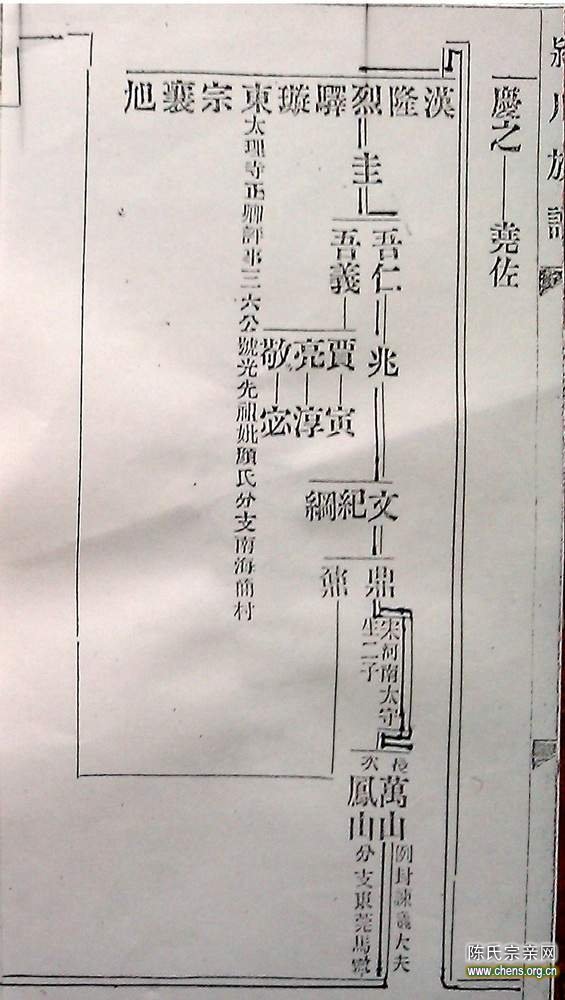 慶之
堯佐
漢隆烈驛璇東宗襄旭
太理寺正卿評事三六公號光先祖妣顏氏分支南海簡村
圭
吾仁
吾義
兆
賈亮敬
寅淳宓
文紀綱
鼎
宋河南太守
生二子
長
次
萬山
鳳山
例封諫義大夫
分支東莞馬
陈氏宗亲网
www.chens.org.cn